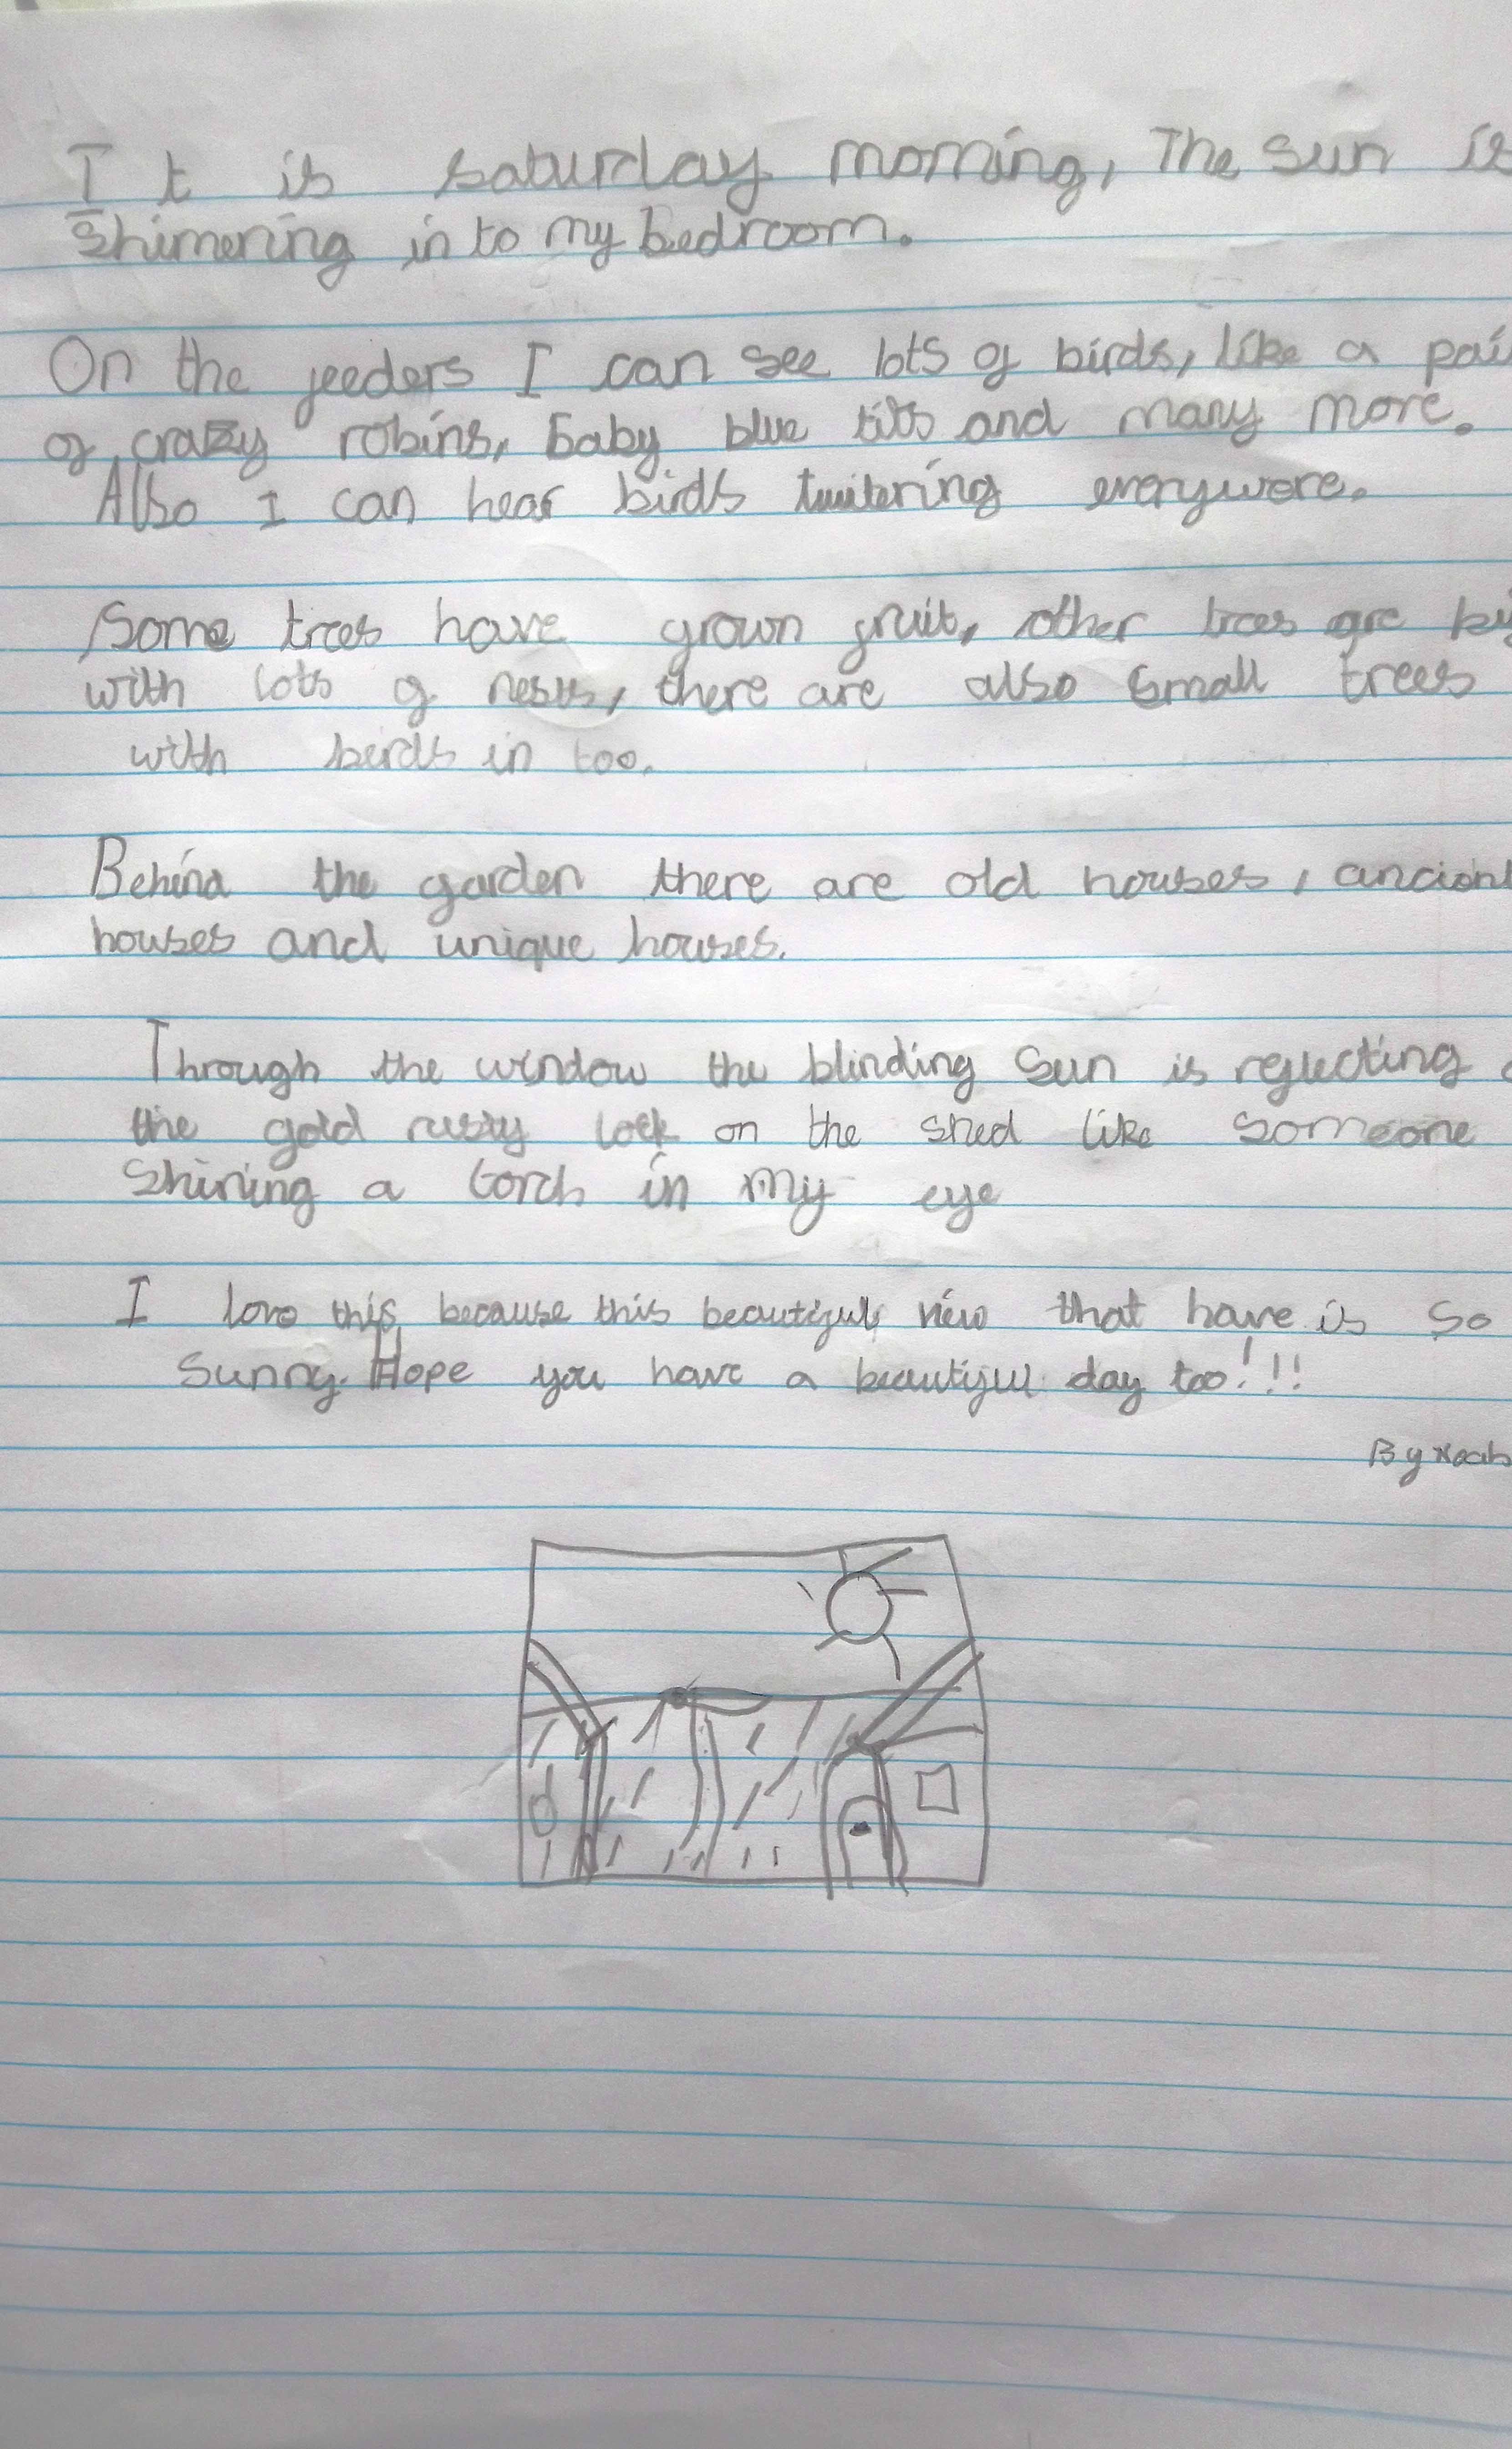 It is saturday morning, The sun is
shimering in to my bedroom.
On the feeders I can see lots of birds, like a pai
of crazy robins, baby blue tits and many more.
Also I can hear birds twitering everywere.
Some trees have grown fruit, other trees are bi
with lots of nests, there are also small trees
with birds in too.
Behind the garden there are old houses, anciont
houses and unique houses.
Through the window the blinding sun is reflecting
the gold rusty lock on the shed like someone
shining a torch in my eye
I love this because this beautiful view that have is so
sunny. Hope you have a beautiful day too!!!
By